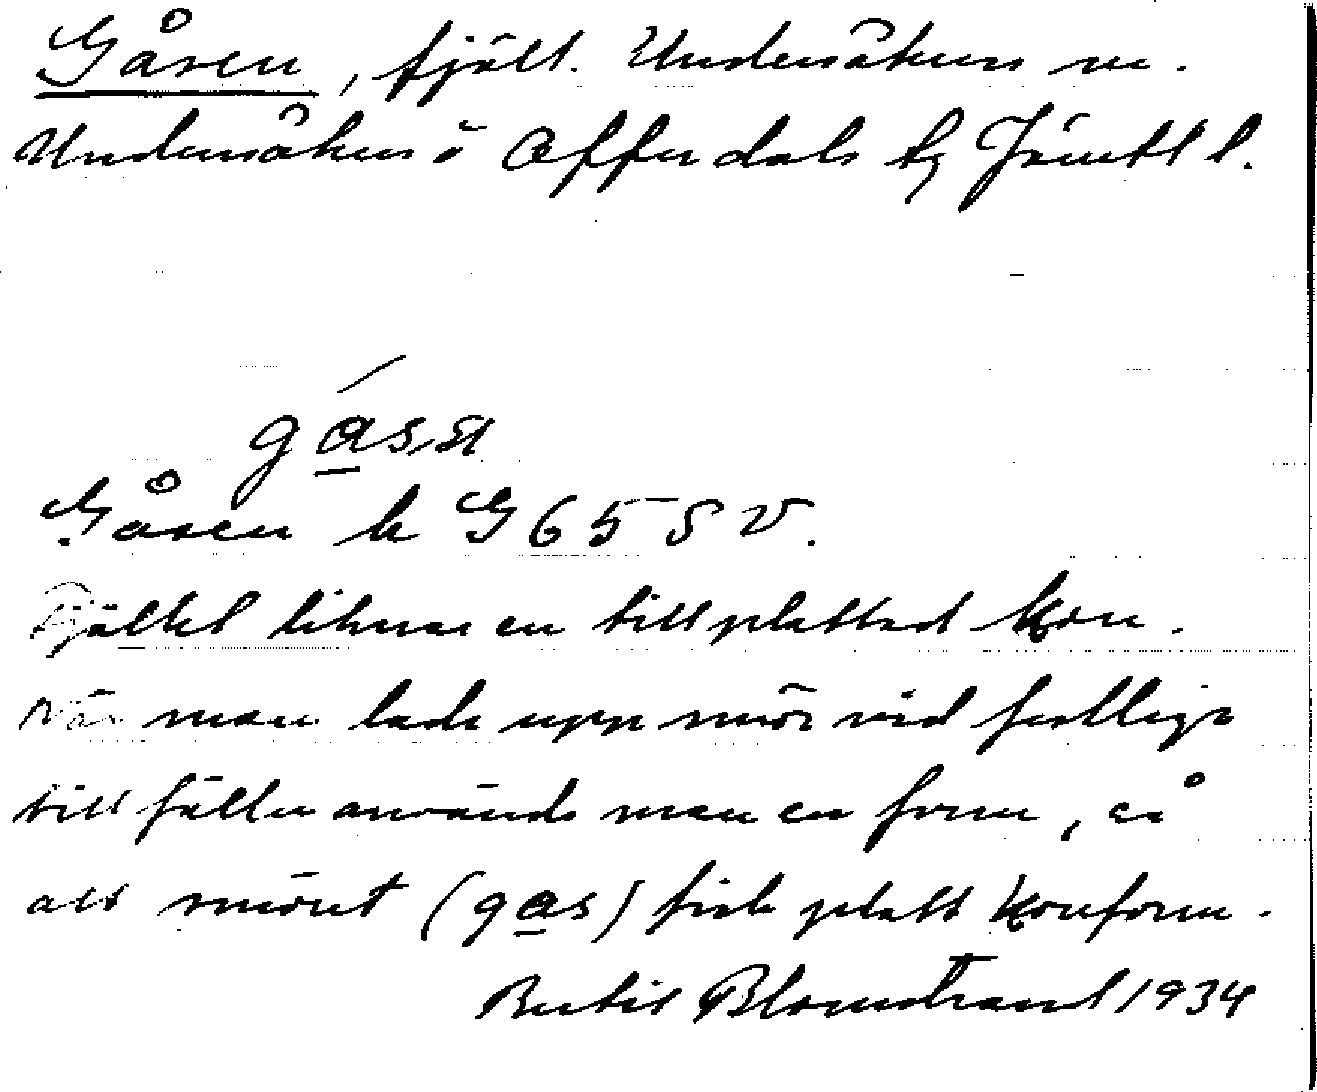 Gåsen, fjäll. Undersåkers sn.
Undersåkers o Offerdals tg Jämtl l.
gas,a
Gåsen k G 65 S V.
Fjället liknar en tillplattad kon.
När man lade upp smör vid festliga
tillfällen använde man en form, så
att smöret (gas) fick platt konform.
Bertil Blomstrand 1934